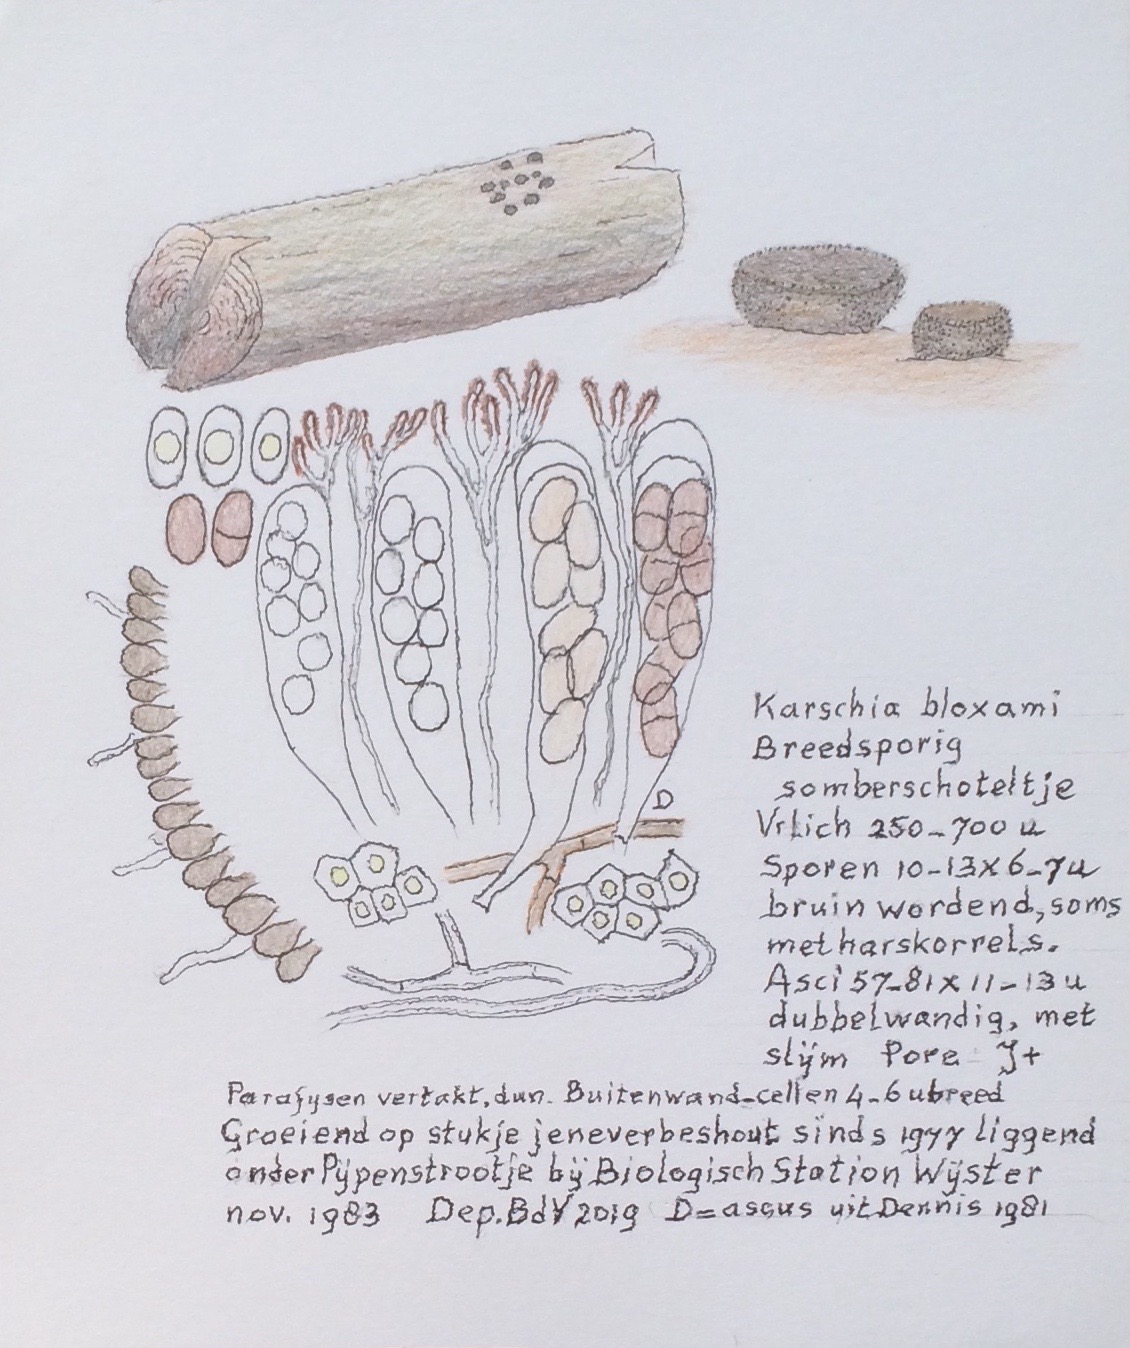 D
Karschia bloxami
Breedsporig
somberschoteltje
Vrlich 250-700 u
Sporen 10-13x6-7u
bruin wordend, soms
met harskorrels.
Asci 57-81x11-13u
dubbelwandig, met
slijm Pore J+
Parafysen vertakt, dun. Buitenwand-cellen 4-6 u breed
Groeiend op stukje jeneverbeshout sinds 1977 liggend
onder Pijpenstrootje bij Biologisch Station Wijster
nov. 1983 Dep. BdV 2019 D=ascus uit Dennis 1981